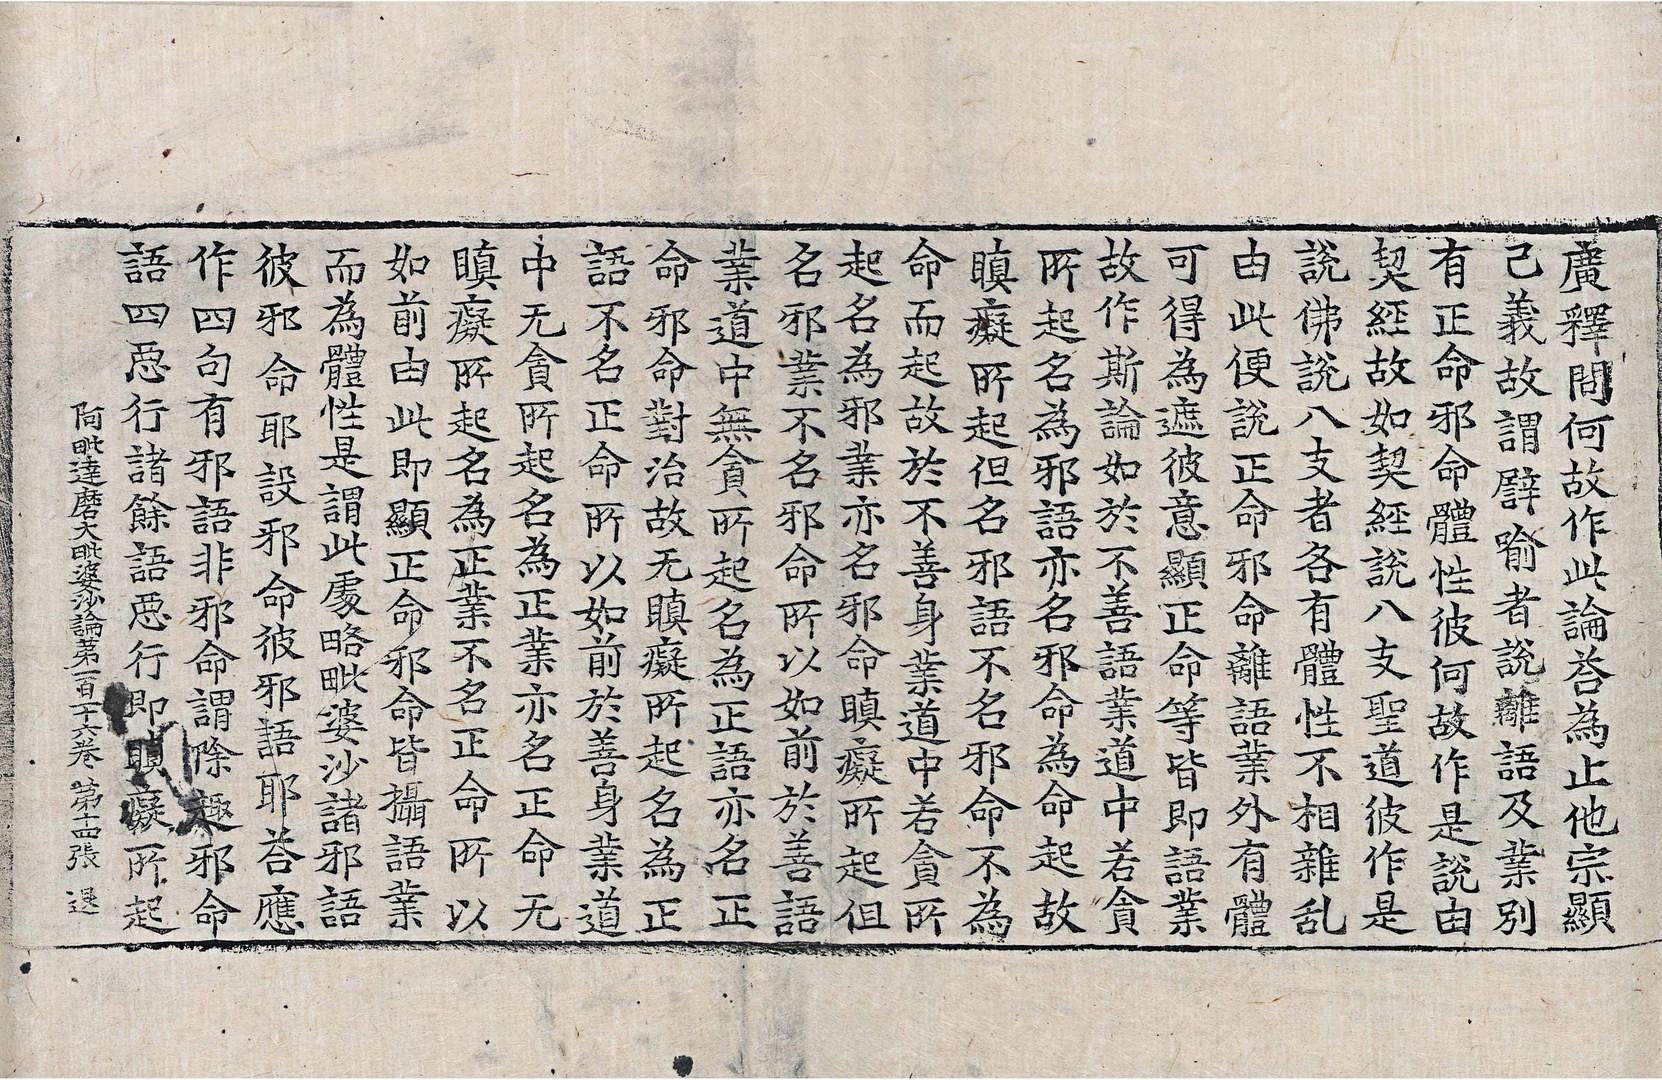 廣釋問何故作此論荅為止他宗顯
己義故謂譬喻者說離語及業別
有正命邪命體性彼何故作是說由
契經故如契經說八支聖道彼作是
說佛說八支者各有體性不相雜乱
由此便說正命邪命離語業外有體
可得為遮彼意顯正命等皆即語業
故作斯論如於不善語業道中若貪
所起名為邪語亦名邪命為命起故
瞋癡所起但名邪語不名邪命不為
命而起故於不善身業道中若貪所
起名為邪業亦名邪命瞋癡所起但
名邪業不名邪命所以如前於善語
業道中無貪所起名為正語亦名正
命邪命對治故无瞋癡所起名為正
語不名正命所以如前於善身業道
中无貪所起名為正業亦名正命无
瞋癡所起名為正業不名正命所以
如前由此即顯正命邪命皆攝語業
而為體性是謂此處略毗婆沙諸邪語
彼邪命耶設邪命彼邪語耶荅應
作四句有邪語非邪命謂除趣邪命
語四惡行諸餘語惡行即瞋癡所起
阿毗達磨大毗婆沙論第一百十六卷 第十四張 選